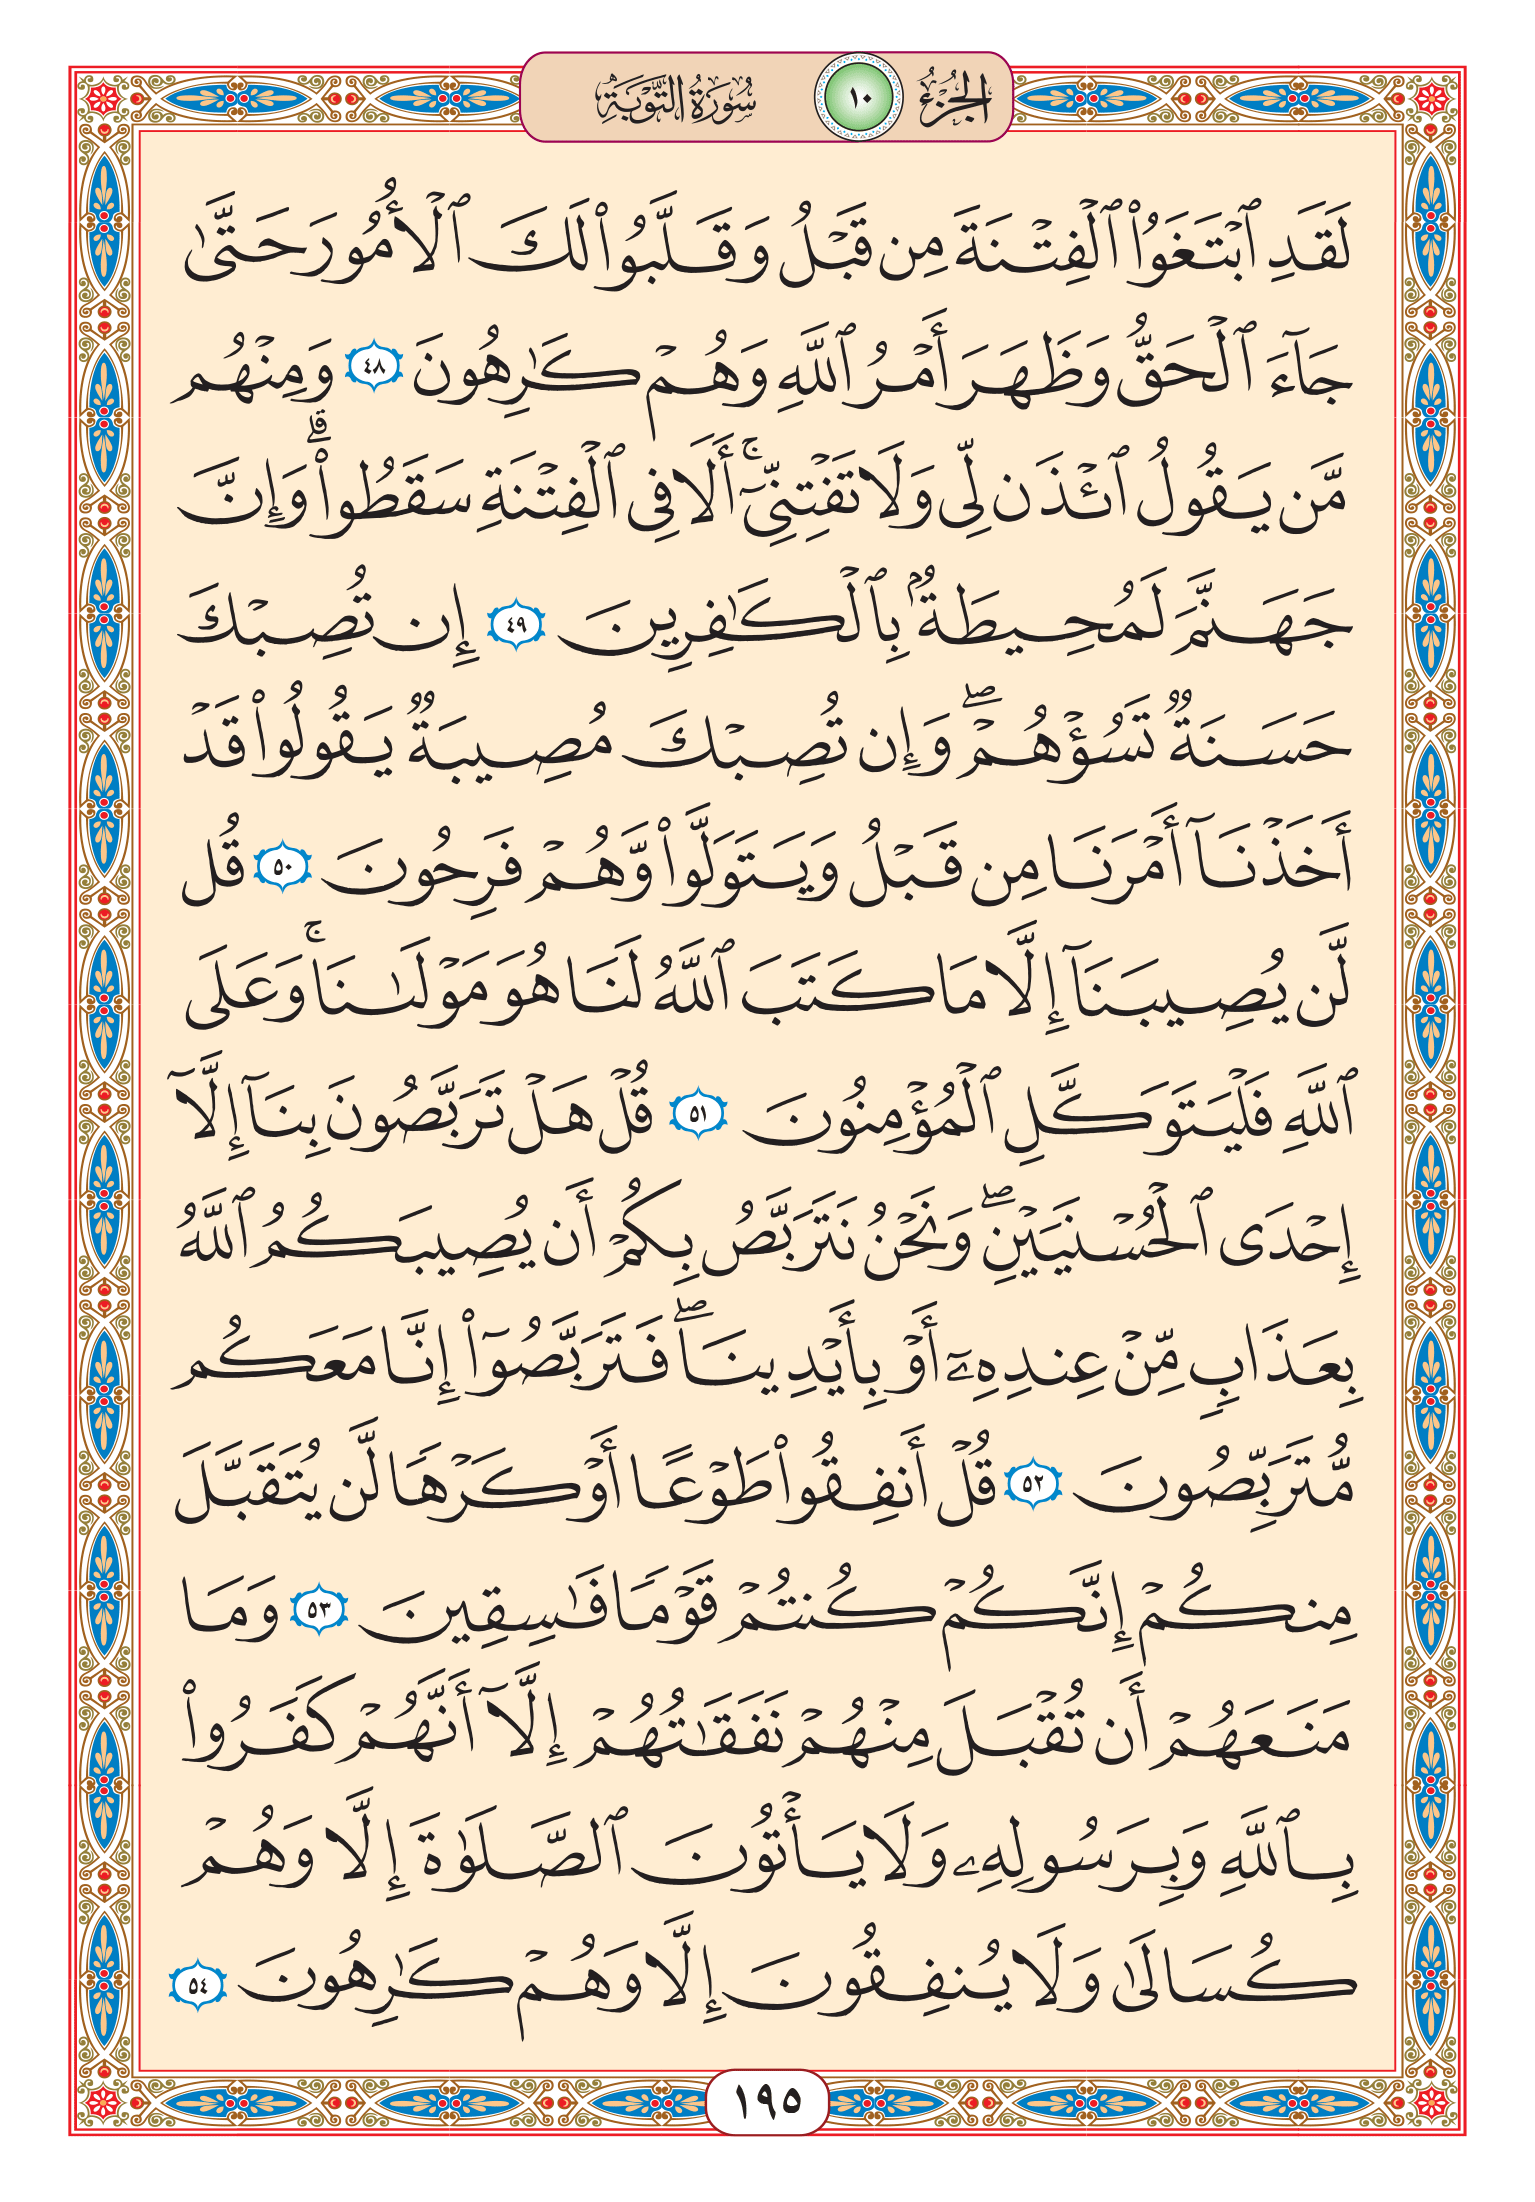 الجزء ١٠ سورة التوبة
لَقَدِ ٱبْتَغَوُا۟ ٱلْفِتْنَةَ مِن قَبْلُ وَقَلَّبُوا۟ لَكَ ٱلْأُمُورَ حَتَّىٰ
جَآءَ ٱلْحَقُّ وَظَهَرَ أَمْرُ ٱللَّهِ وَهُمْ كَـٰرِهُونَ ٤٨ وَمِنْهُم
مَّن يَقُولُ ٱئْذَن لِّى وَلَا تَفْتِنِّىٓ ۚ أَلَا فِى ٱلْفِتْنَةِ سَقَطُوا۟ ۗ وَإِنَّ
جَهَنَّمَ لَمُحِيطَةٌۢ بِٱلْكَـٰفِرِينَ ٤٩ إِن تُصِبْكَ
حَسَنَةٌ تَسُؤْهُمْ ۖ وَإِن تُصِبْكَ مُصِيبَةٌ يَقُولُوا۟ قَدْ
أَخَذْنَآ أَمْرَنَا مِن قَبْلُ وَيَتَوَلَّوا۟ وَّهُمْ فَرِحُونَ ٥٠ قُل
لَّن يُصِيبَنَآ إِلَّا مَا كَتَبَ ٱللَّهُ لَنَا هُوَ مَوْلَىٰنَا ۚ وَعَلَى
ٱللَّهِ فَلْيَتَوَكَّلِ ٱلْمُؤْمِنُونَ ٥١ قُلْ هَلْ تَرَبَّصُونَ بِنَآ إِلَّآ
إِحْدَى ٱلْحُسْنَيَيْنِ ۖ وَنَحْنُ نَتَرَبَّصُ بِكُمْ أَن يُصِيبَكُمُ ٱللَّهُ
بِعَذَابٍ مِّنْ عِندِهِۦٓ أَوْ بِأَيْدِينَا ۖ فَتَرَبَّصُوٓا۟ إِنَّا مَعَكُم
مُّتَرَبِّصُونَ ٥٢ قُلْ أَنفِقُوا۟ طَوْعًا أَوْ كَرْهًا لَّن يُتَقَبَّلَ
مِنكُمْ إِنَّكُمْ كُنتُمْ قَوْمًا فَـٰسِقِينَ ٥٣ وَمَا
مَنَعَهُمْ أَن تُقْبَلَ مِنْهُمْ نَفَقَـٰتُهُمْ إِلَّآ أَنَّهُمْ كَفَرُوا۟
بِٱللَّهِ وَبِرَسُولِهِۦ وَلَا يَأْتُونَ ٱلصَّلَوٰةَ إِلَّا وَهُمْ
كُسَالَىٰ وَلَا يُنفِقُونَ إِلَّا وَهُمْ كَـٰرِهُونَ ٥٤
١٩٥